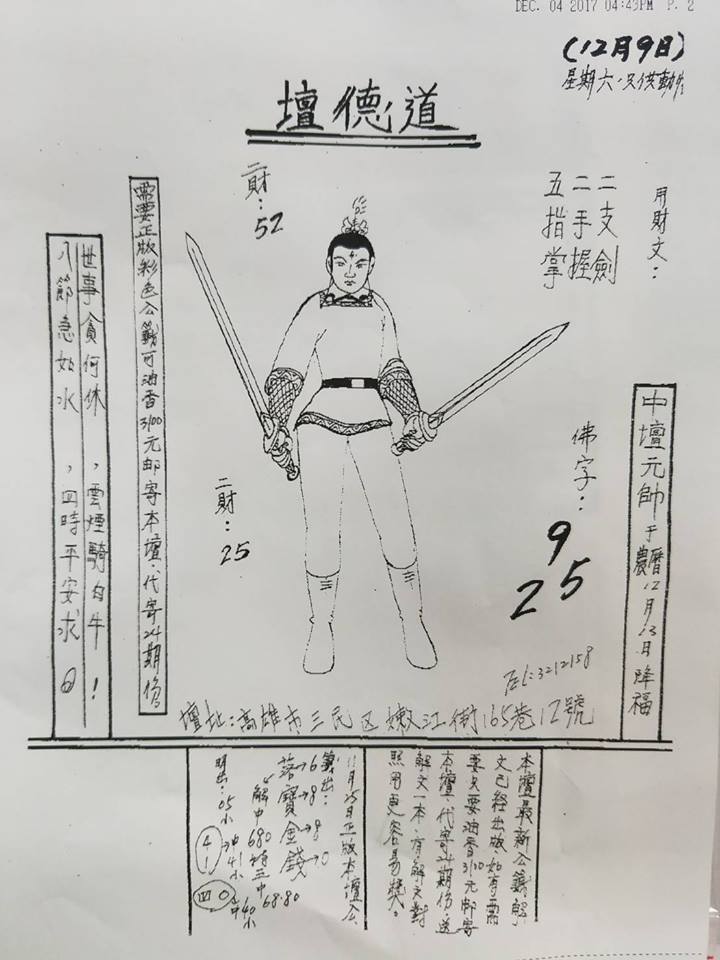 DEC. 04 2017 04:43PM P. 2
(12月9日)
星期六
壇德道
用財文：
二支劍
二手握
五指掌
二財：
52
需要正版彩色公籤可油香3100元邮寄本壇、代寄24期份
世事貪何休，雲煙騎白牛！
八節急如水，四時平安求
中壇元帥于農曆12月13日降福
佛字：
9
25
二財：
25
3212158
壇址：高雄市三民区嫩江街165巷12號
本壇最新公籤解
文已经出版如有需
要只要油香3100元邮寄
本壇、代寄24期份、送
解文一本、有解文對
照用更容易獎。
11月25日正版本壇公
籤出：
落→6
寶→8
金→8
錢→0
解中680
68.80
明出：05小
41
沖41小
四
中40小